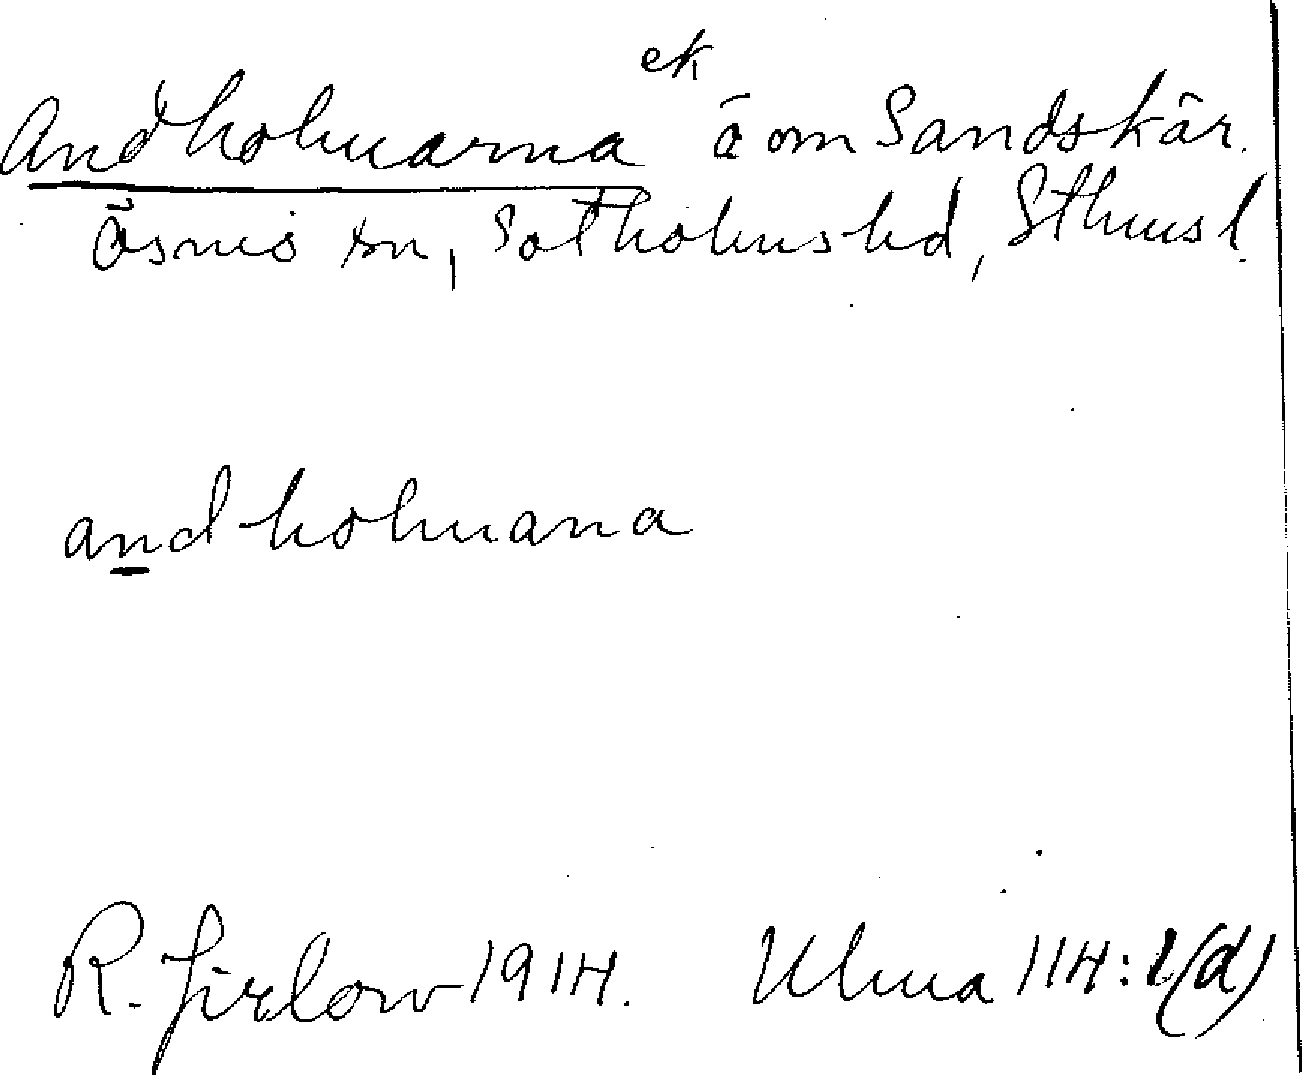 ek
Andholmarna ö om Sandskär.
Ösmo sn, Sotholms hd, Sthmsl.
andholmana
R. Jirlow 1914. Ulma 114:1(d)